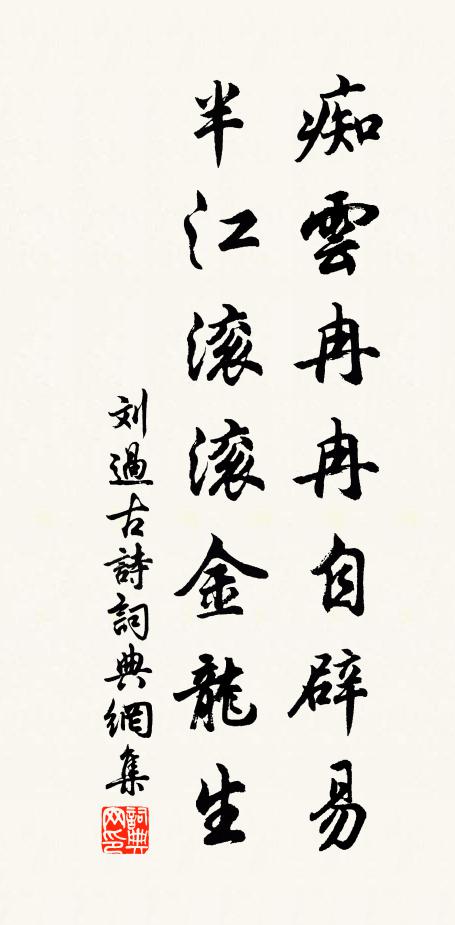 痴雲冉冉自辟易
半江滚滚金龍生
刘過古詩詞典網集
詞典
网印